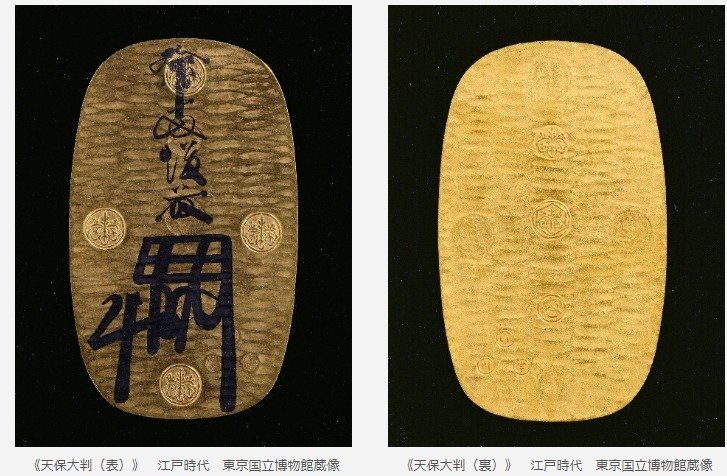 拾両後藤
《天保大判（表）》　江戸時代　東京国立博物館蔵像
《天保大判（裏）》　江戸時代　東京国立博物館蔵像